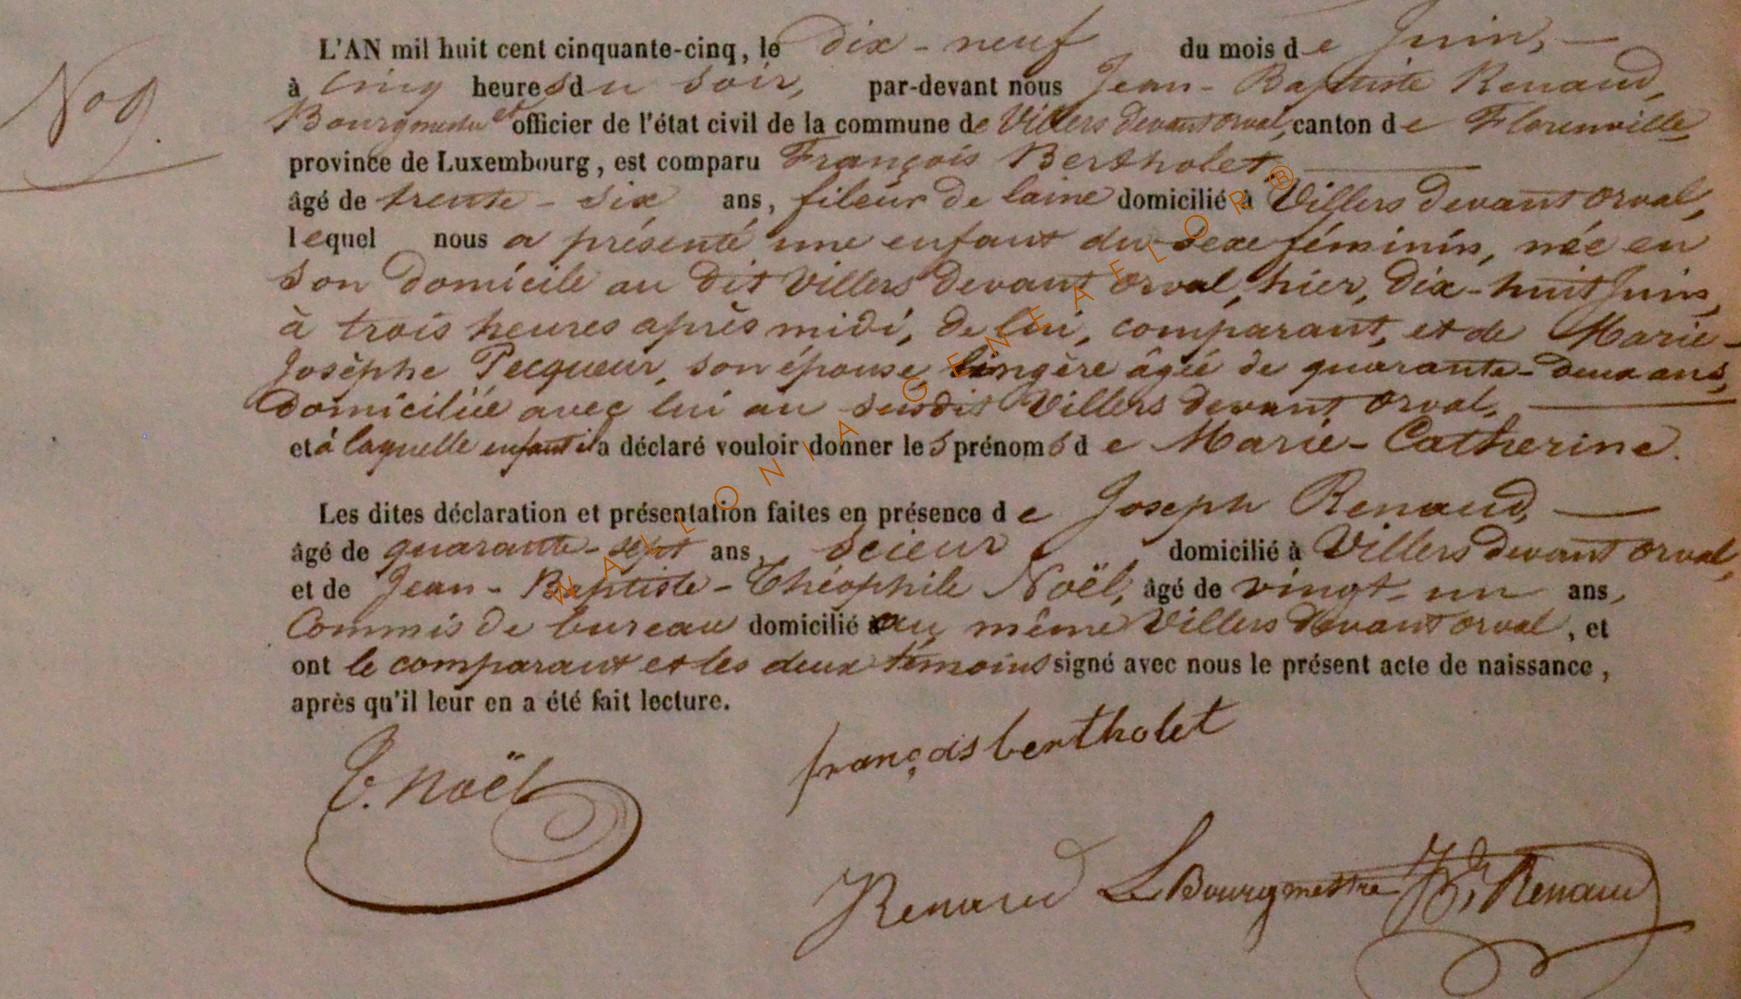 N° 9.
L'AN mil huit cent cinquante-cinq, le dix-neuf du mois de Juin,
à cinq heures du soir, par-devant nous Jean-Baptiste Renaud,
Bourgmestre et officier de l'état civil de la commune de Villers devant orval, canton de Florenville,
province de Luxembourg, est comparu François Bertholet,
âgé de trente-six ans, fileur de laine domicilié à Villers devant orval,
lequel nous a présenté une enfant du sexe féminin, née en
son domicile au dit Villers devant orval, hier, dix-huit Juin,
à trois heures après midi, de lui, comparant, et de Marie-
Josèphe Pecqueur, son épouse lingère âgée de quarante-deux ans,
domiciliée avec lui au susdit Villers devant orval,
et à laquelle enfant il a déclaré vouloir donner les prénoms de Marie-Catherine.
Les dites déclaration et présentation faites en présence de Joseph Renaud,
âgé de quarante-sept ans, scieur, domicilié à Villers devant orval,
et de Jean-Baptiste-Théophile Noël, âgé de vingt-un ans,
Commis de bureau domicilié au même Villers devant orval, et
ont le comparant et les deux témoins signé avec nous le présent acte de naissance,
après qu'il leur en a été fait lecture.
T. Noël
françois bertholet
Renaud Le Bourgmestre JB, Renaud
WALLONIA GENEAELOR®